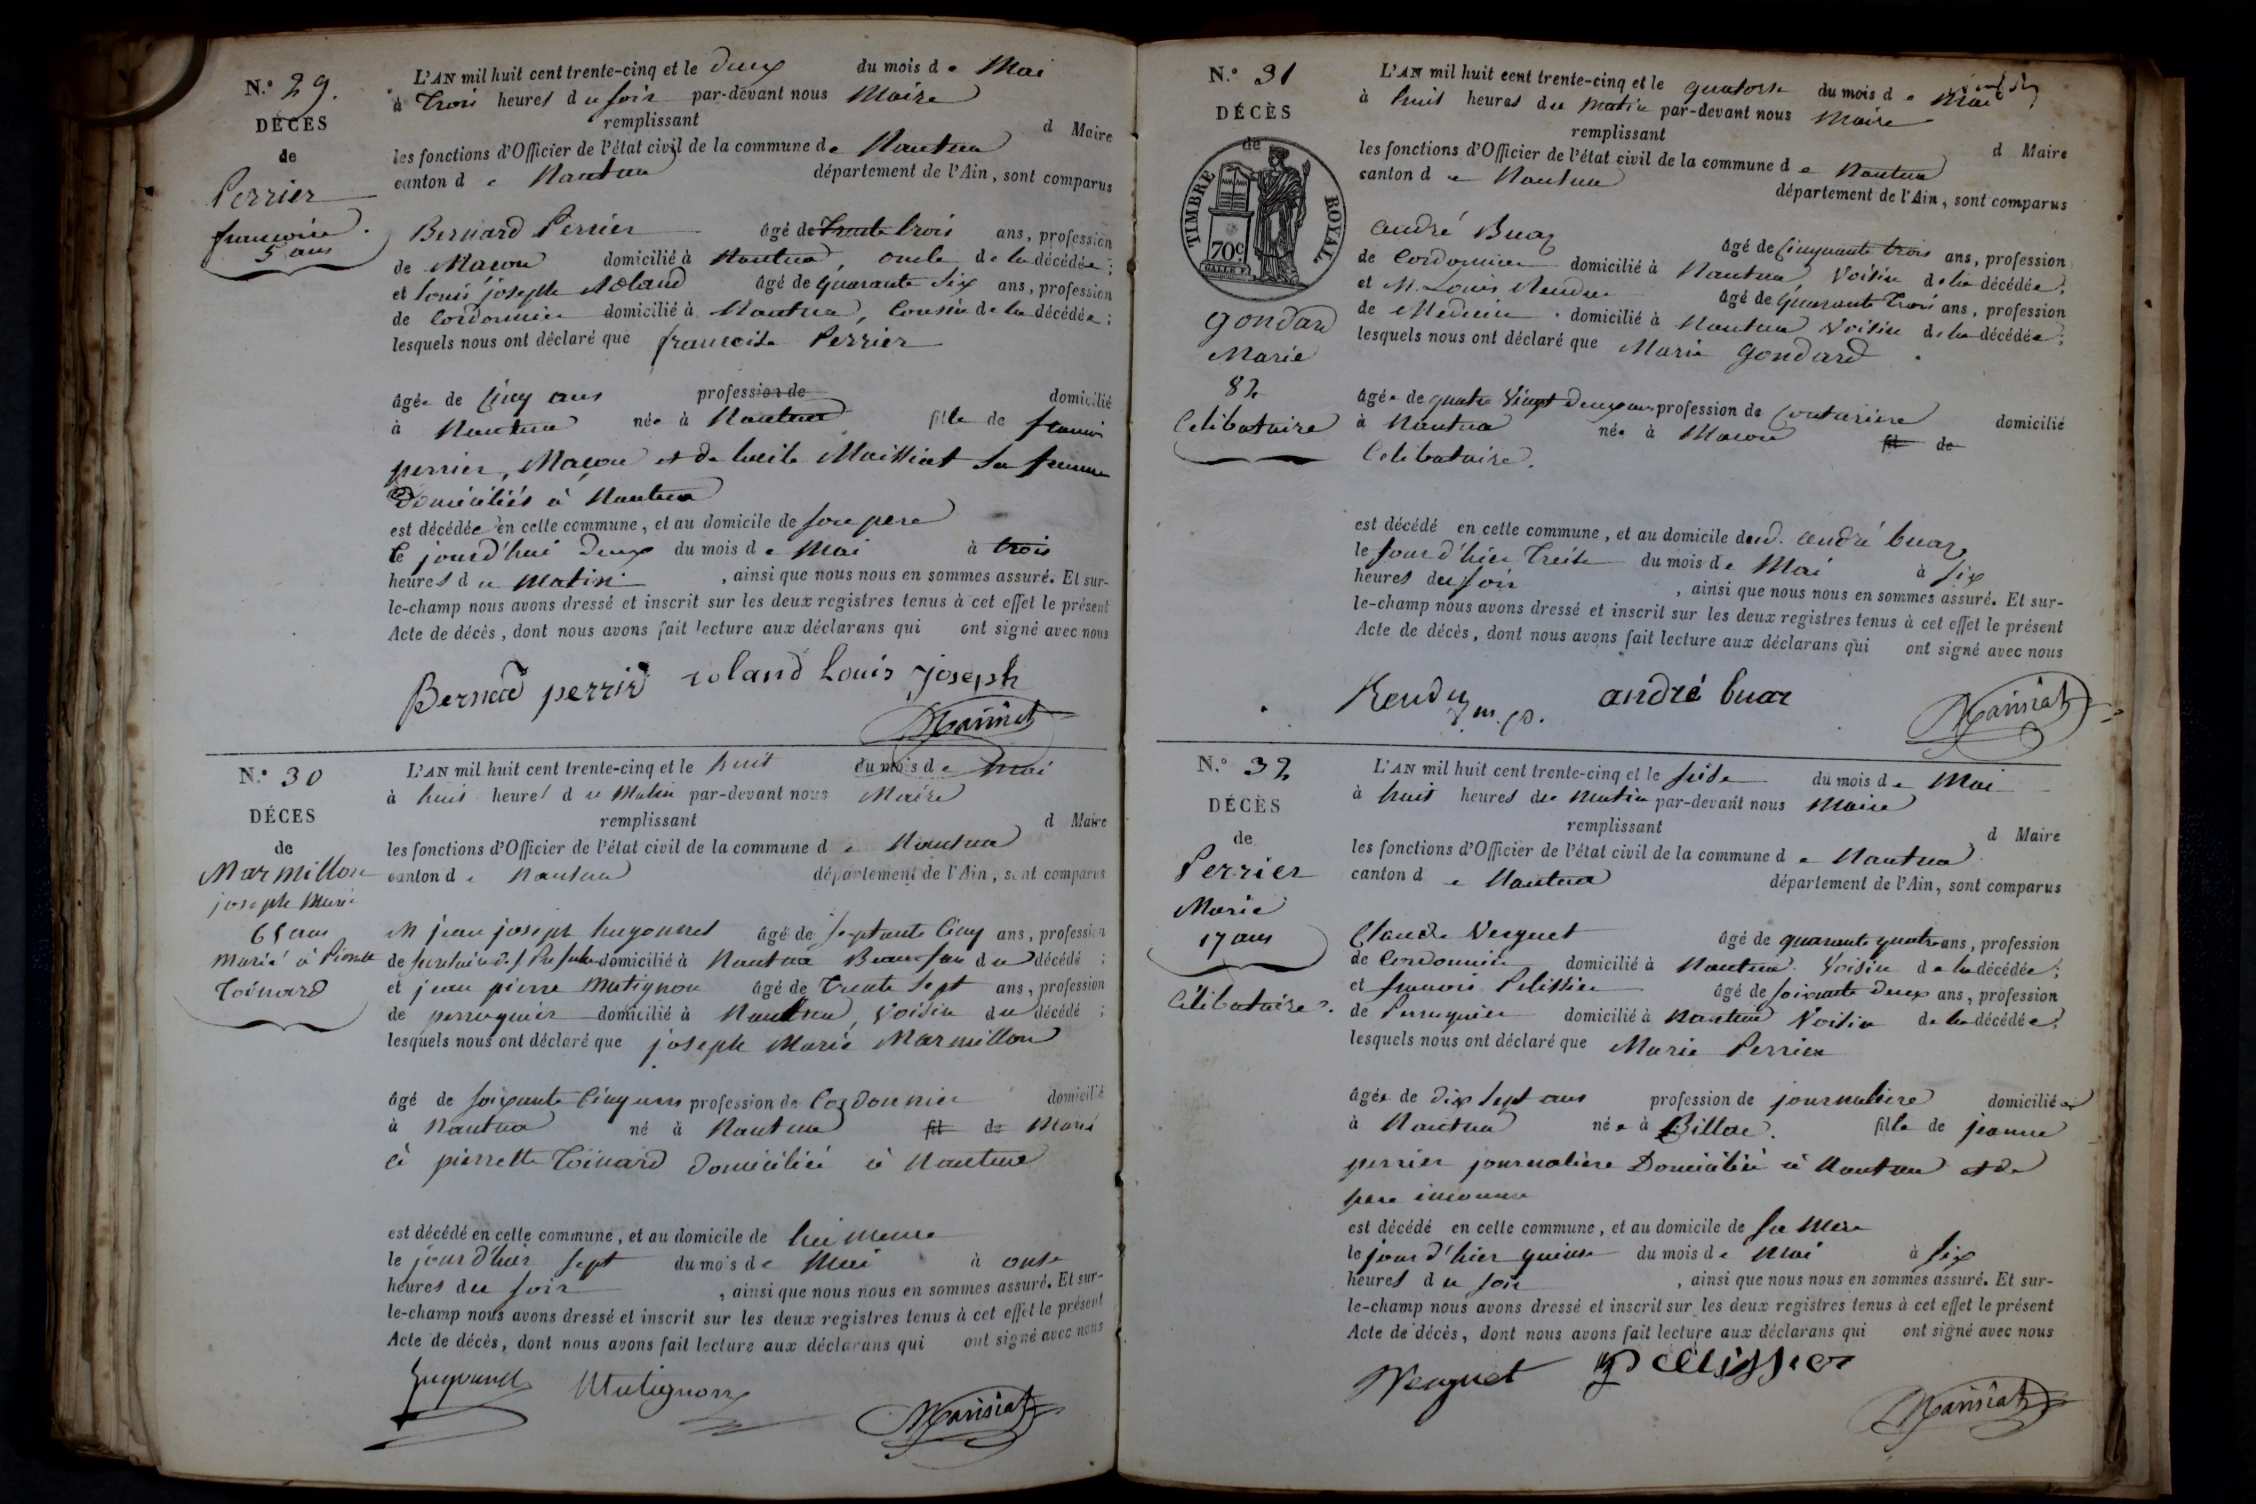 N.° 29.
DÉCÈS
de
Perrier
francoise
5 ans
L'AN mil huit cent trente-cinq et le deux du mois de Mai
à Trois heures du soir par-devant nous Maire
remplissant d Maire
les fonctions d'Officier de l'état civil de la commune de Nantua
canton de Nantua département de l'Ain, sont comparus
Bernard Perrier âgé de Trente trois ans, profession
de Maçon domicilié à Nantua, oncle de la décédée;
et Louis joseph Roland âgé de quarante six ans, profession
de Cordonnier domicilié à Nantua, Cousin de la décédée;
lesquels nous ont déclaré que francoise Perrier
âgée de Cinq ans profession de domicilié
à Nantua née à Nantua fille de francois
perrier, Maçon et de Maissiat sa femme
Domiciliés à Nantua
est décédée en cette commune, et au domicile de son pere
le jourd'hui deux du mois de Mai à trois
heures du matin, ainsi que nous nous en sommes assuré. Et sur-
le-champ nous avons dressé et inscrit sur les deux registres tenus à cet effet le présent
Acte de décès, dont nous avons fait lecture aux déclarans qui ont signé avec nous
Bernard perrier roland Louis joseph
Maissiat
N.° 30
DÉCES
de
Marmillon
joseph Marie
65 ans
marié à Pierrette
Toinard
L'AN mil huit cent trente-cinq et le huit du mois de mai
à huit heures du Matin par-devant nous Maire
remplissant d Maire
les fonctions d'Officier de l'état civil de la commune de Nantua
canton de Nantua département de l'Ain, sont comparus
M jean joseph hugonnet âgé de septante Cinq ans, profession
de domicilié à Nantua Beau frere du décédé;
et jean pierre Matignon âgé de Trente Sept ans, profession
de perruquier domicilié à Nantua, Voisin du décédé;
lesquels nous ont déclaré que joseph Marie Marmillon
âgé de soixante Cinq ans profession de Cordonnier domicilié
à Nantua né à Nantua fil de Marié
à pierrette Toinard domiciliée à Nantua
est décédé en cette commune, et au domicile de lui meme
le jourd'hier sept du mois de Mai à onze
heures du soir, ainsi que nous nous en sommes assuré. Et sur-
le-champ nous avons dressé et inscrit sur les deux registres tenus à cet effet le présent
Acte de décès, dont nous avons fait lecture aux déclarans qui ont signé avec nous
Matignon
Maissiat
N.° 31
DÉCÈS
de
TIMBRE ROYAL.
70c
gondard
Marie
82
Celibataire
L'AN mil huit cent trente-cinq et le quatorze du mois de Mai
à huit heures du matin par-devant nous Maire
remplissant d Maire
les fonctions d'Officier de l'état civil de la commune de Nantua
canton de Nantua département de l'Ain, sont comparus
andré Buaz âgé de Cinquante trois ans, profession
de Cordonnier domicilié à Nantua Voisin de la décédée;
et M. Louis Rendu âgé de quarante Trois ans, profession
de Médecin domicilié à Nantua Voisin de la décédée;
lesquels nous ont déclaré que Marie gondard
âgée de quatre Vingt deux ans profession de Couturiere domicilié
à Nantua née à Macon fil de
Celibataire.
est décédé en cette commune, et au domicile dud. andré buaz
le jour d'hier Treize du mois de Mai à six
heures du soir, ainsi que nous nous en sommes assuré. Et sur-
le-champ nous avons dressé et inscrit sur les deux registres tenus à cet effet le présent
Acte de décès, dont nous avons fait lecture aux déclarans qui ont signé avec nous
Rendu andré buaz
Maissiat
N.° 32
DÉCÈS
de
Perrier
Marie
17 ans
Célibataire.
L'AN mil huit cent trente-cinq et le seize du mois de Mai
à huit heures du matin par-devant nous Maire
remplissant d Maire
les fonctions d'Officier de l'état civil de la commune de Nantua
canton de Nantua département de l'Ain, sont comparus
Claude Verguet âgé de quarante quatre ans, profession
de Cordonnier domicilié à Nantua Voisin de la décédée;
et francois Pelissier âgé de soixante deux ans, profession
de Perruquier domicilié à Nantua Voisin de la décédée;
lesquels nous ont déclaré que Marie Perrier
âgée de dix sept ans profession de journaliere domiciliée
à Nantua née à Billac. fille de jeanne
perrier journaliere Domiciliée à Nantua et de
pere inconnu
est décédé en cette commune, et au domicile de sa Mere
le jour d'hier quinze du mois de Mai à six
heures du soir, ainsi que nous nous en sommes assuré. Et sur-
le-champ nous avons dressé et inscrit sur les deux registres tenus à cet effet le présent
Acte de décès, dont nous avons fait lecture aux déclarans qui ont signé avec nous
Verguet pellissier
Maissiat